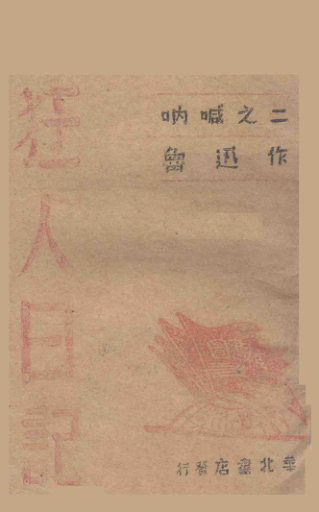 狂人日記
吶喊之二
魯迅作
華北書店發行